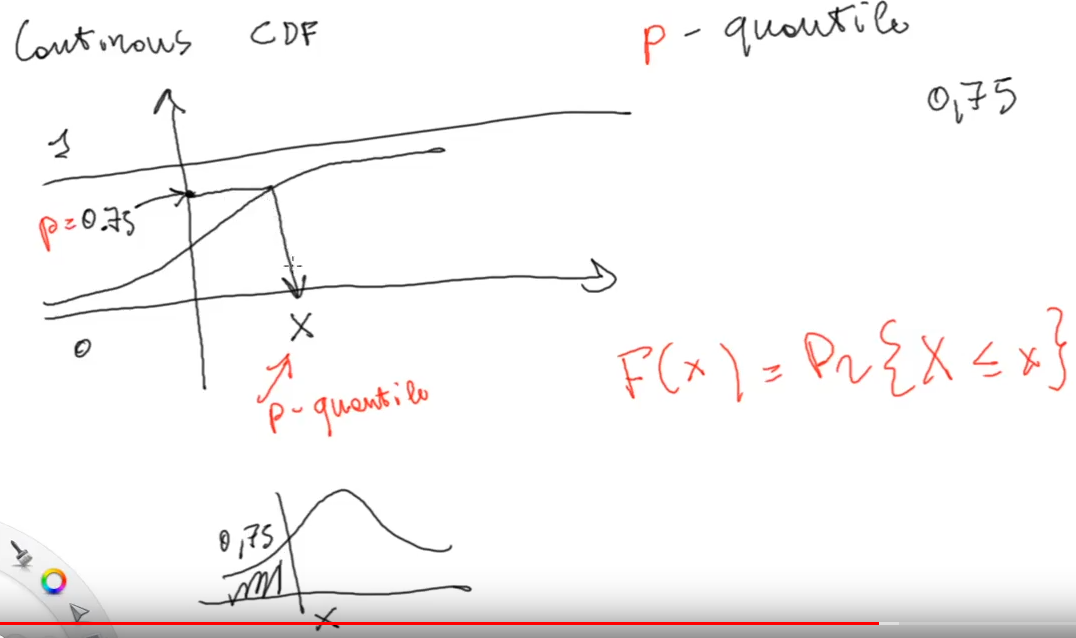 Continous CDF
p - quantile
0,75
1
p = 0.75
0
x
p - quantile
F(x) = Pr{X ≤ x}
0,75
x